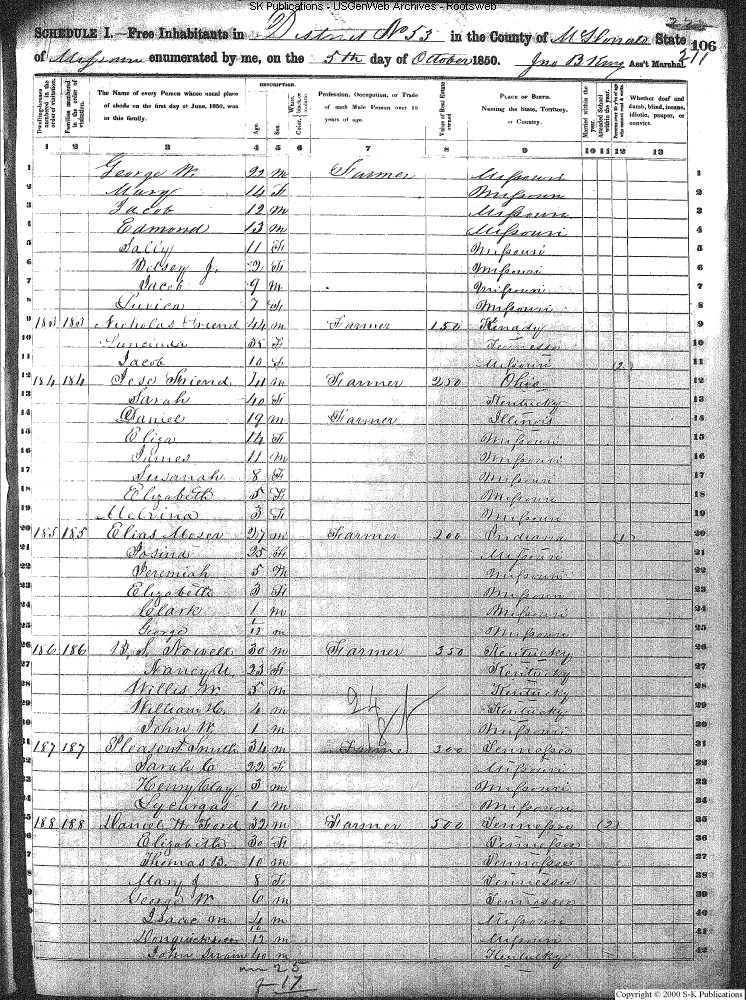 SK Publications - USGenWeb Archives - Rootsweb
SCHEDULE I.—Free Inhabitants in District No 53 in the County of State 106
of Missouri enumerated by me, on the 5th day of October 1850. Jno B King Ass't Marshal. 211
Dwelling-houses numbered in the order of visitation. Families numbered in the order of visitation. The Name of every Person whose usual place of abode on the first day of June, 1850, was in this family. DESCRIPTION. Age. Sex. Color, White, black, or mulatto. Profession, Occupation, or Trade of each Male Person over 15 years of age. Value of Real Estate owned PLACE OF BIRTH. Naming the State, Territory, or Country. Married within the year. Attended School within the year. Persons over 20 y'rs of age who cannot read & write. Whether deaf and dumb, blind, insane, idiotic, pauper, or convict.
1 2 3 4 5 6 7 8 9 10 11 12 13
1 George W. 22 m Farmer Missouri 1
2 Mary 14 F Missouri 2
3 Jacob 12 m Missouri 3
4 Edmond 13 m Missouri 4
5 Sally 11 F Missouri 5
6 Betsey J. 2 F Missouri 6
7 Jacob 9 m Missouri 7
8 Luvica 7 F Missouri 8
9 183 183 Nicholas Friend 44 m Farmer 150 9
10 Lucinda 35 F Tennessee 10
11 Jacob 10 F Missouri (2) 11
12 184 184 Friend m Farmer 250 Ohio 12
13 Sarah 40 F Kentucky 13
14 Daniel 19 m Farmer Illinois 14
15 Eliza 14 F Missouri 15
16 James 11 m Missouri 16
17 Susanah 8 F Missouri 17
18 Elizabeth 5 F Missouri 18
19 Melvina 3 F Missouri 19
20 185 185 Elias Moser 27 m Farmer 200 Indiana (1) 20
21 25 F Missouri 21
22 Jeremiah 5 M Missouri 22
23 Elizabeth 3 F Missouri 23
24 Clark 1 m Missouri 24
25 George 1/12 m Missouri 25
26 186 186 B. S. Nowell 30 m Farmer 350 Kentucky 26
27 Nancy 23 F Kentucky 27
28 Willis W. 5 m Kentucky 28
29 William H. 4 m Kentucky 29
30 John W. 1 m Missouri 30
31 187 187 Pleasent Smith 34 m Farmer 300 Tennessee 31
32 Sarah C 22 F Missouri 32
33 Henry Clay 3 m Missouri 33
34 Lycurgas 1 m Missouri 34
35 188 188 Daniel H. Ford 32 m Farmer 500 Tennessee (2) 35
36 Elizabeth 30 F Tennessee 36
37 Thomas B. 10 m Tennessee 37
38 Mary J 8 F Tennessee 38
39 George W. 6 m Tennessee 39
40 Isaac m 4 m Missouri 40
41 m Missouri 41
42 John 40 m Kentucky 42
25
17
Copyright © 2000 S-K Publications